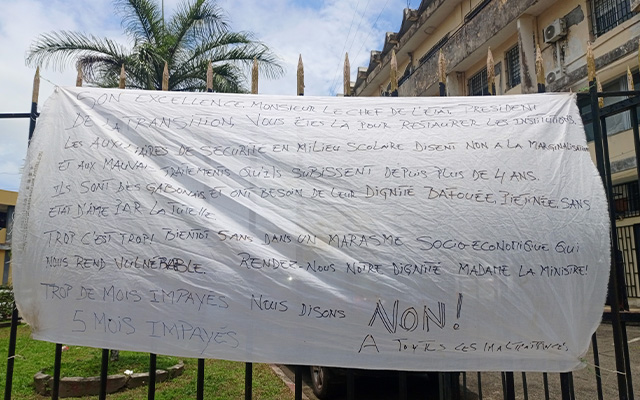 SON EXCELLENCE, MONSIEUR LE CHEF DE L'ÉTAT, PRESIDENT
DE LA TRANSITION, VOUS ÊTES LÀ POUR RESTAURER LES INSTITUTIONS.
LES AUXILIAIRES DE SECURITE EN MILIEU SCOLAIRE DISENT NON A LA MARGINALISATION
ET AUX MAUVAIS TRAITEMENTS QU'ILS SUBISSENT DEPUIS PLUS DE 4 ANS.
ILS SONT DES GABONAIS ET ONT BESOIN DE LEUR DIGNITÉ BAFOUÉE, PIETINÉE, SANS
ÉTAT D'ÂME PAR LA TUTELLE
TROP C'EST TROP! BIENTÔT 5 ANS, DANS UN MARASME SOCIO-ÉCONOMIQUE QUI
NOUS REND VULNÉRABLE. RENDEZ-NOUS NOTRE DIGNITÉ MADAME LA MINISTRE!
TROP DE MOIS IMPAYÉS NOUS DISONS NON!
5 MOIS IMPAYÉS A TOUTES LES MALTRAITANCES.